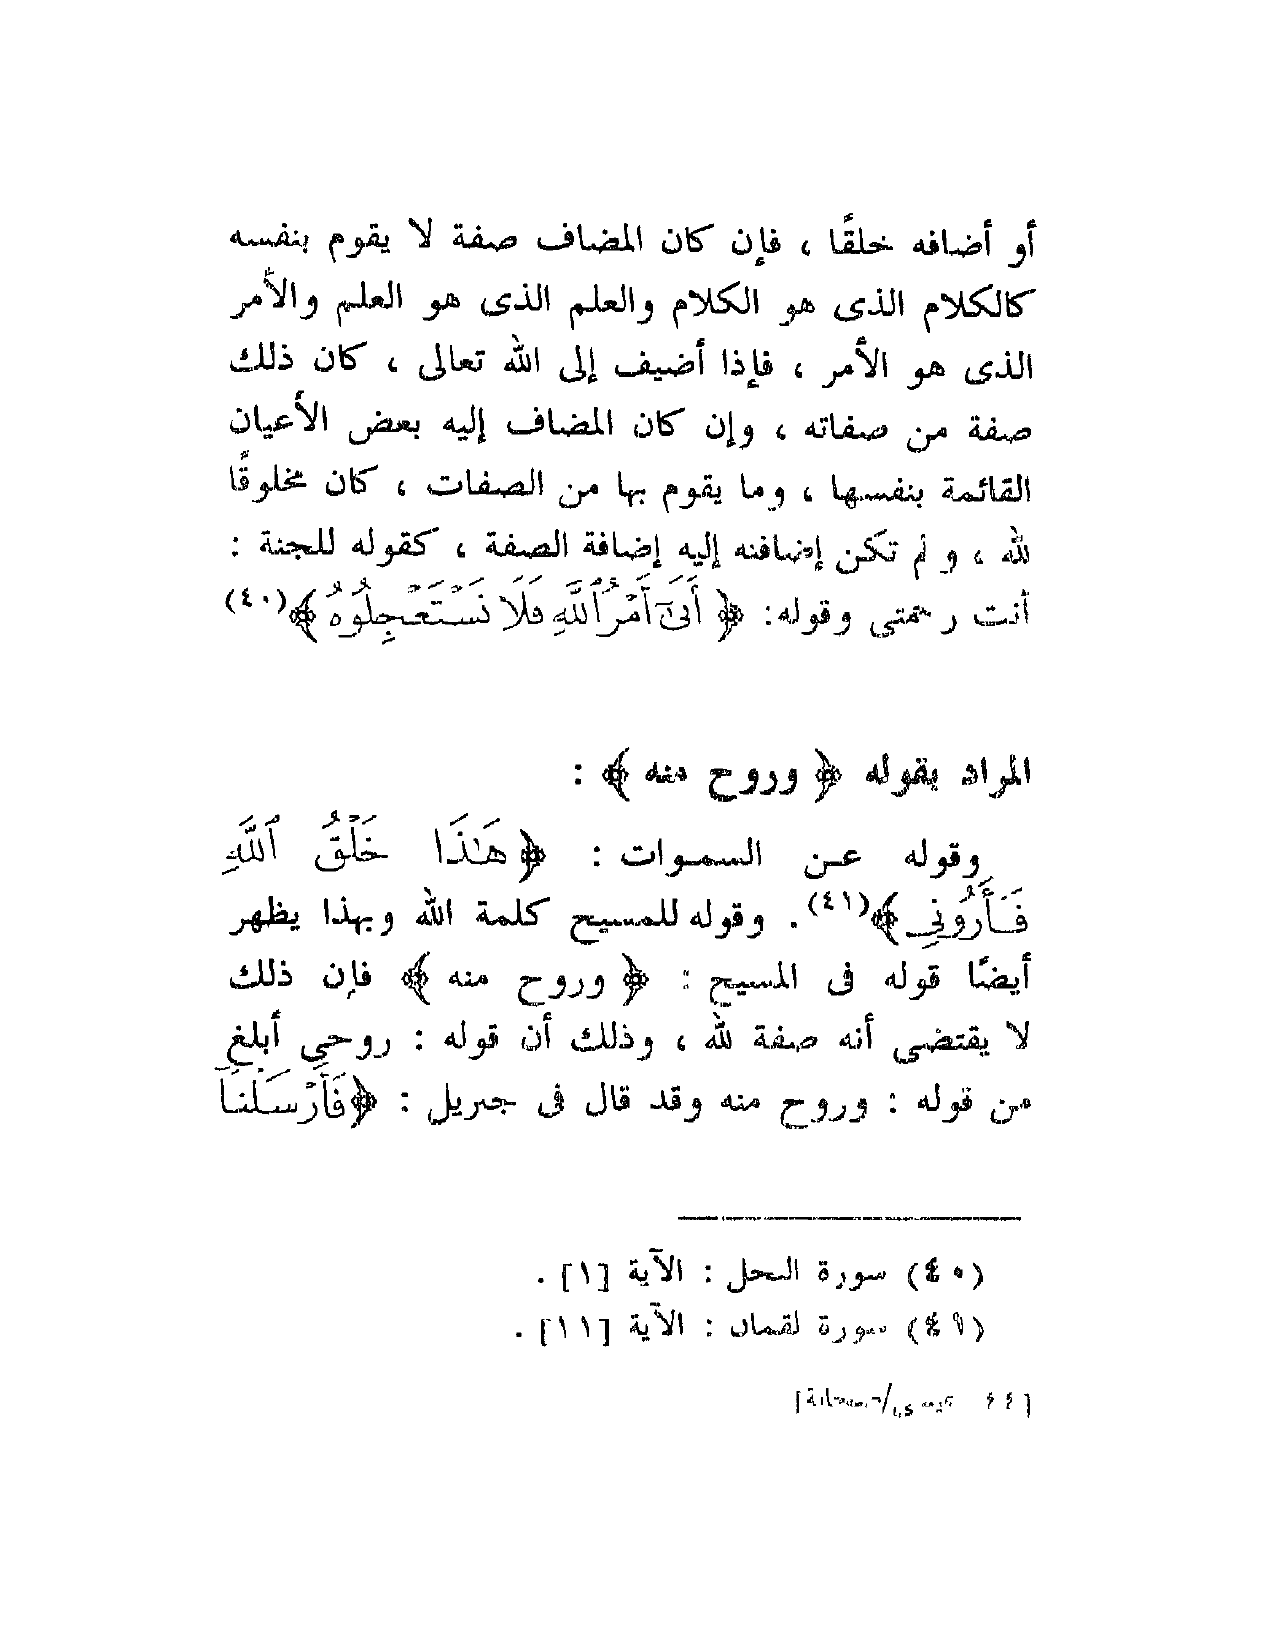 أو أضافه خلقًا ، فإن كان المضاف صفة لا يقوم بنفسه
كالكلام الذى هو الكلام والعلم الذى هو العلم والأمر
الذى هو الأمر ، فإذا أضيف إلى الله تعالى ، كان ذلك
صفة من صفاته ، وإن كان المضاف إليه بعض الأعيان
القائمة بنفسها ، وما يقوم بها من الصفات ، كان مخلوقًا
لله ، و لم تكن إضافته إليه إضافة الصفة ، كقوله للجنة :
أنت رحمتى وقوله: ﴿ أَتَىٰٓ أَمْرُ ٱللَّهِ فَلَا تَسْتَعْجِلُوهُ ﴾(٤٠)
المراد بقوله ﴿ وروح منه ﴾ :
وقوله عن السموات : ﴿ هَـٰذَا خَلْقُ ٱللَّهِ
فَأَرُونِى ﴾(٤١) . وقوله للمسيح كلمة الله وبهذا يظهر
أيضًا قوله فى المسيح : ﴿ وروح منه ﴾ فإن ذلك
لا يقتضى أنه صفة لله ، وذلك أن قوله : روحي أبلغ
من قوله : وروح منه وقد قال فى جبريل : ﴿فَأَرْسَلْنَا
(٤٠) سورة النحل : الآية [١] .
(٤١) سورة لقمان : الآية [١١] .